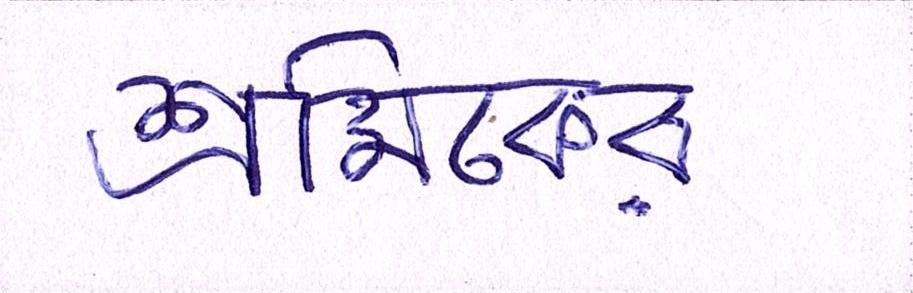 শ্রমিকের